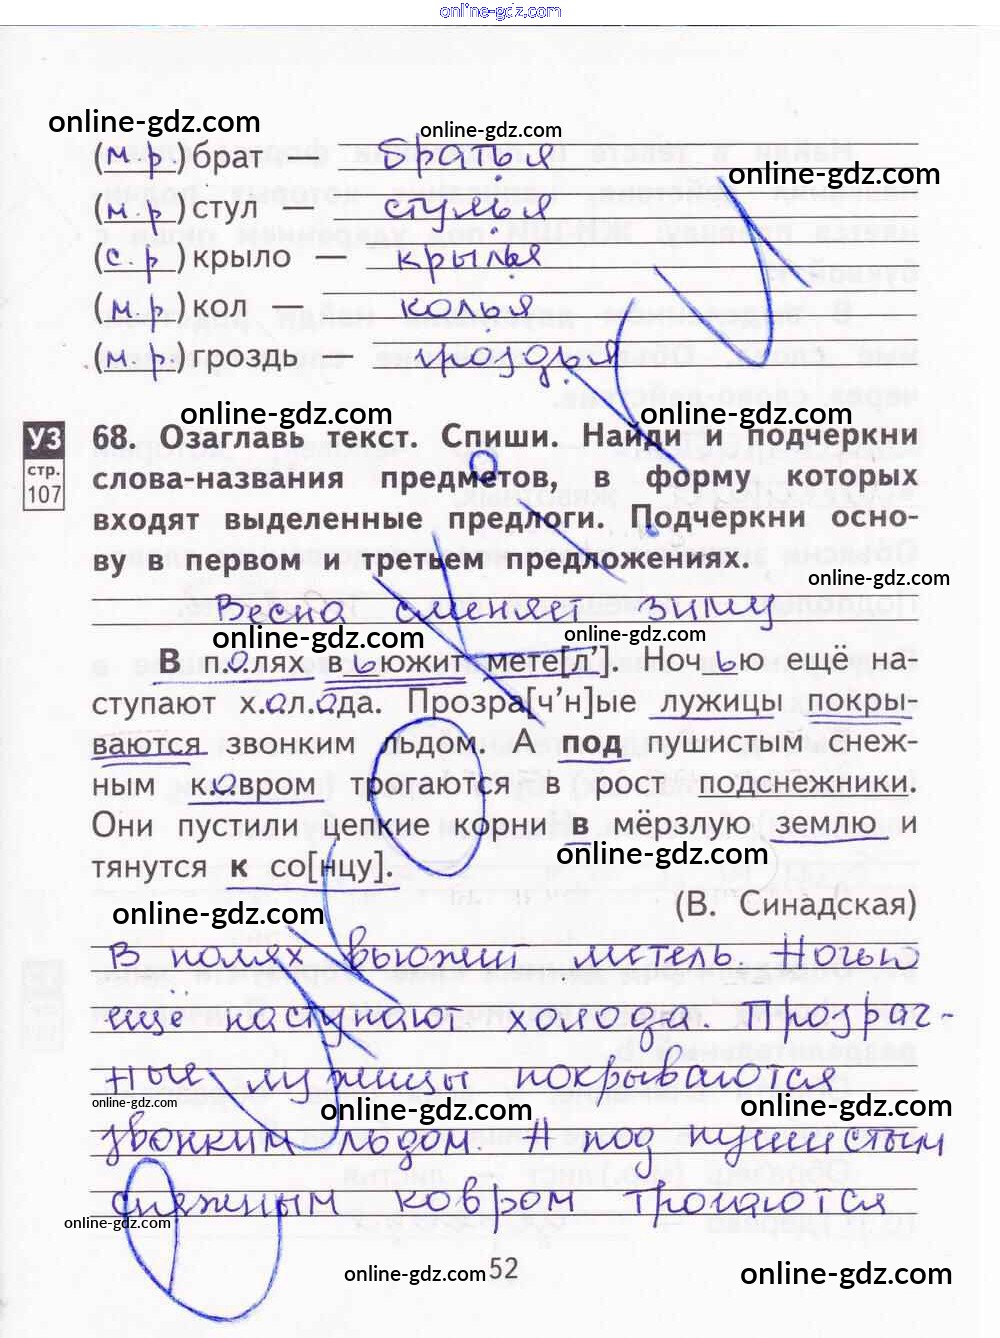 online-gdz.com
online-gdz.com
online-gdz.com
(м.р)брат — братья
online-gdz.com
(м.р)стул — стулья
(с.р)крыло — крылья
(м.р)кол — колья
(м.р)гроздь — гроздья
online-gdz.com online-gdz.com
УЗ
стр.
107
68. Озаглавь текст. Спиши. Найди и подчеркни
слова-названия предметов, в форму которых
входят выделенные предлоги. Подчеркни осно-
ву в первом и третьем предложениях.
online-gdz.com
Весна сменяет зиму
online-gdz.com online-gdz.com
В п.олях вьюжит мете[л’]. Ночью ещё на-
ступают х.ол.ода. Прозра[ч’н]ые лужицы покры-
ваются звонким льдом. А под пушистым снеж-
ным к.овром трогаются в рост подснежники.
Они пустили цепкие корни в мёрзлую землю и
online-gdz.com
тянутся к со[нцу].
online-gdz.com
(В. Синадская)
В полях вьюжит метель. Ночью
ещё наступают холода. Прозрач-
ные лужицы покрываются
online-gdz.com online-gdz.com online-gdz.com
звонким льдом. А под пушистым
снежным ковром трогаются
online-gdz.com
online-gdz.com 52 online-gdz.com